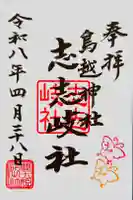 奉拝
鳥越神社
志志岐社
令和八年四月二十八日